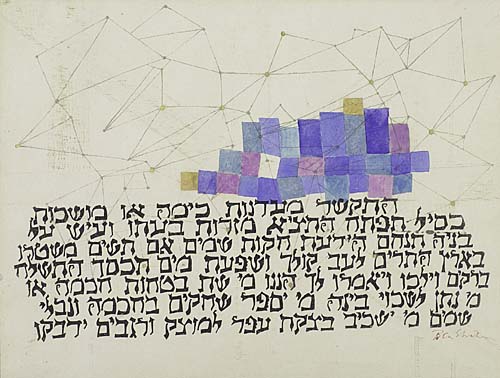 התקשר מעדנות כימה או מושכות
כסיל תפתח התציא מזרות בעתו ועיש על
בניה תנחם הידעת חקות שמים אם תשים משטרו
בארץ התרים לעב קולך ושפעת מים תכסך התשלח
ברקים וילכו ויאמרו לך הננו מי שת בטחות חכמה או
מי נתן לשכוי בינה מי יספר שחקים בחכמה ונבלי
שמים מי ישכיב בצקת עפר למוצק ורגבים ידבקו
Ben Shahn